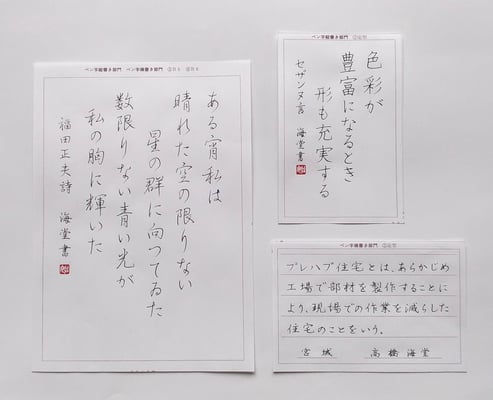 ペン字縦書き部門　ペン字横書き部門
ある宵私は
晴れた空の限りない
星の群に向つてゐた
数限りない青い光が
私の胸に輝いた
福田正夫詩　海堂書
色彩が
豊富になるとき
形も充実する
セザンヌ言　海堂書
ペン字横書き部門
プレハブ住宅とは、あらかじめ
工場で部材を製作することに
より、現場での作業を減らした
住宅のことをいう。
宮城　高橋海堂